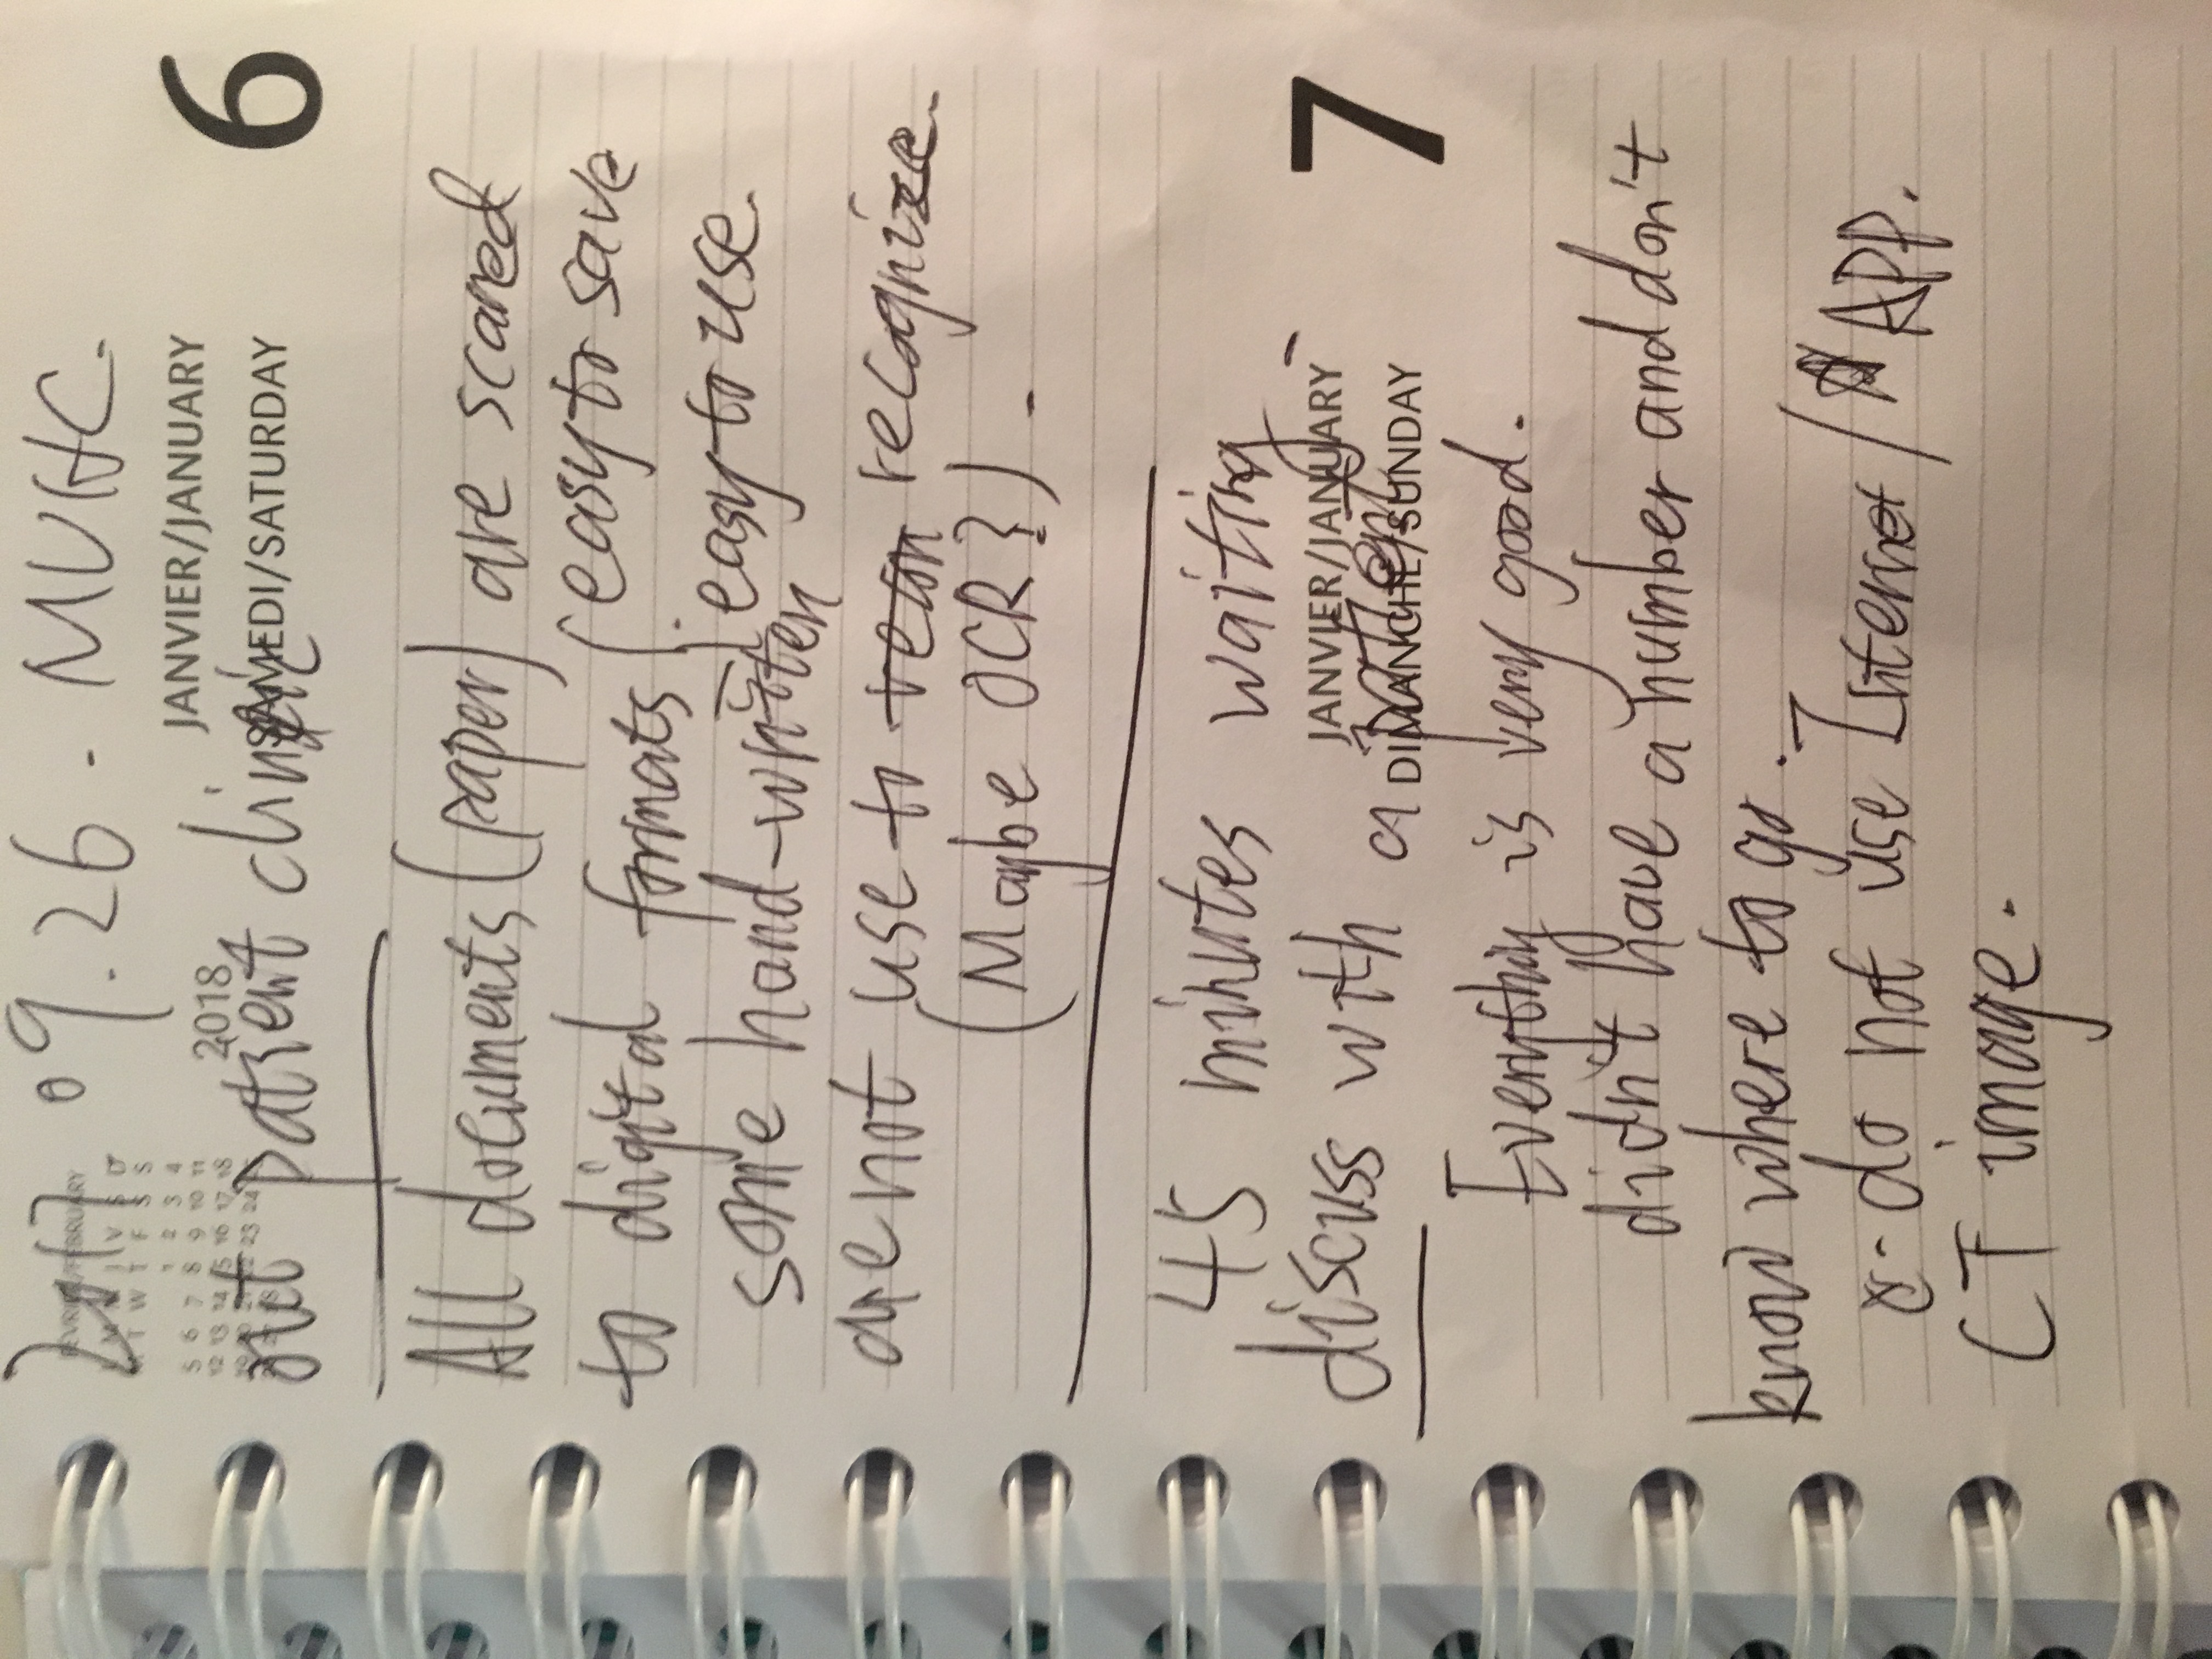 2017 09.26. MUHC.
FÉVRIER/FEBRUARY
L M M J V S D
M T W T F S S
1 2 3 4
5 6 7 8 9 10 11
12 13 14 15 16 17 18
22 23 24
2018
JANVIER/JANUARY
SAMEDI/SATURDAY
6
out patient clinic
All documents (paper) are scaned
to digital formats
easy to save
easy to use.
some hand-written
are not use to recon recognize.
(Maybe OCR?).
45 minutes waiting
JANVIER/JANUARY
DIMANCHE/SUNDAY
7
discuss with a patient
Everything is very good.
didn't have a number and don't
know where to go.
- do not use Internet / APP.
CT image.